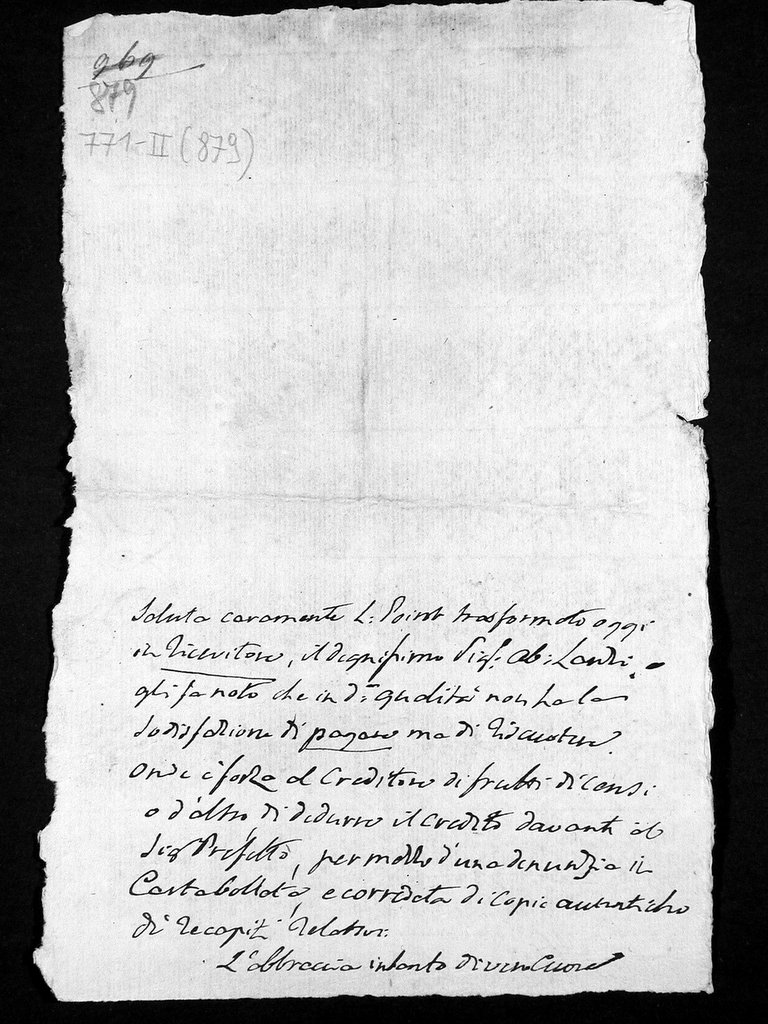 969
879
771-II (879)
Saluta caramente L: Point trasformato oggi
in Ricevitore, il degnissimo Sigr. Ab: Landi, e
gli fa noto che in da. qualità non ha la
sodisfazione di pagare ma di riscuotere.
Onde è forza al Creditore di frutti di Censi
o d'altro di dedurre il credito davanti al
Sigr Prefetto, per mezzo d'una denunzia in
Carta bollata, e corredata di copie autentiche
di Recapiti Relativi.
L'abbraccia intanto di vero Cuore